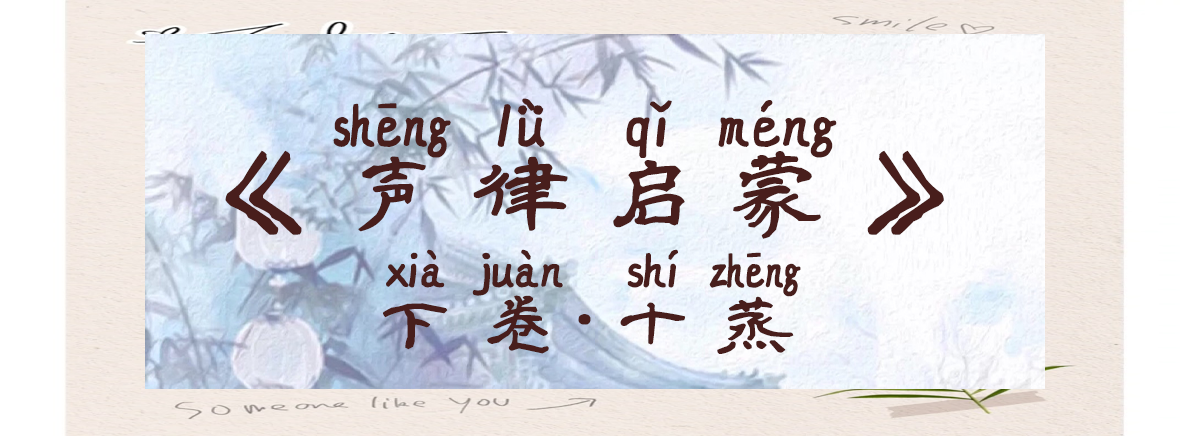 smile♡
shēng lǜ qǐ méng
《声律启蒙》
xià juàn shí zhēng
下卷·十蒸
someone like you